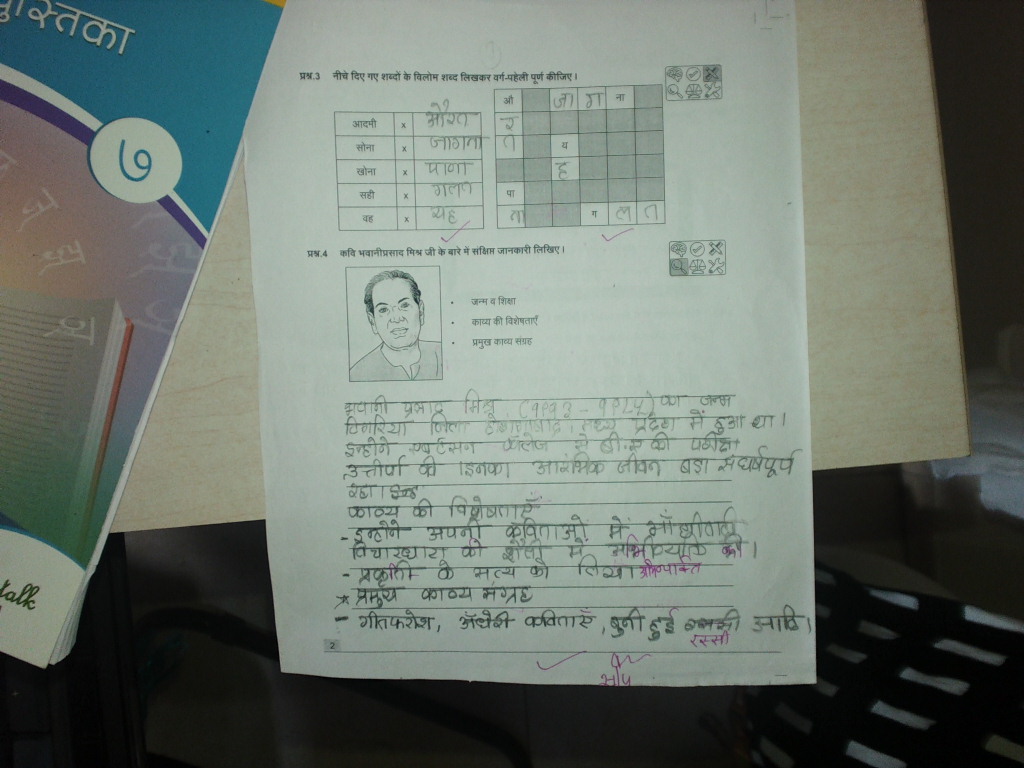 स्तिका
७
talk
प्रश्न.3 नीचे दिए गए शब्दों के विलोम शब्द लिखकर वर्ग-पहेली पूर्ण कीजिए।
आदमी x औरत
सोना x जागना
खोना x पाना
सही x गलत
वह x यह
औ जा ग ना
र
त य
ह
पा
ना ग ल त
प्रश्न.4 कवि भवानीप्रसाद मिश्र जी के बारे में संक्षिप्त जानकारी लिखिए।
• जन्म व शिक्षा
• काव्य की विशेषताएँ
• प्रमुख काव्य संग्रह
भवानी प्रसाद मिश्र (१९१३ - १९८५) का जन्म
जिला मध्य प्रदेश में हुआ था।
इन्होंने कॉलेज से बी.ए की परीक्षा
उत्तीर्ण की। इनका आरंभिक जीवन बड़ा संघर्षपूर्ण
रहा।
काव्य की विशेषताएँ
- इन्होंने अपनी कविताओं में गाँधीवादी
विचारधारा की शैली में अभिव्यक्ति की।
- प्रकृति के सत्य को लिखा अभिव्यक्ति
* प्रमुख काव्य संग्रह
- गीतफरोश, अँधेरी कविताएँ, बुनी हुई आदि।
रस्सी
2